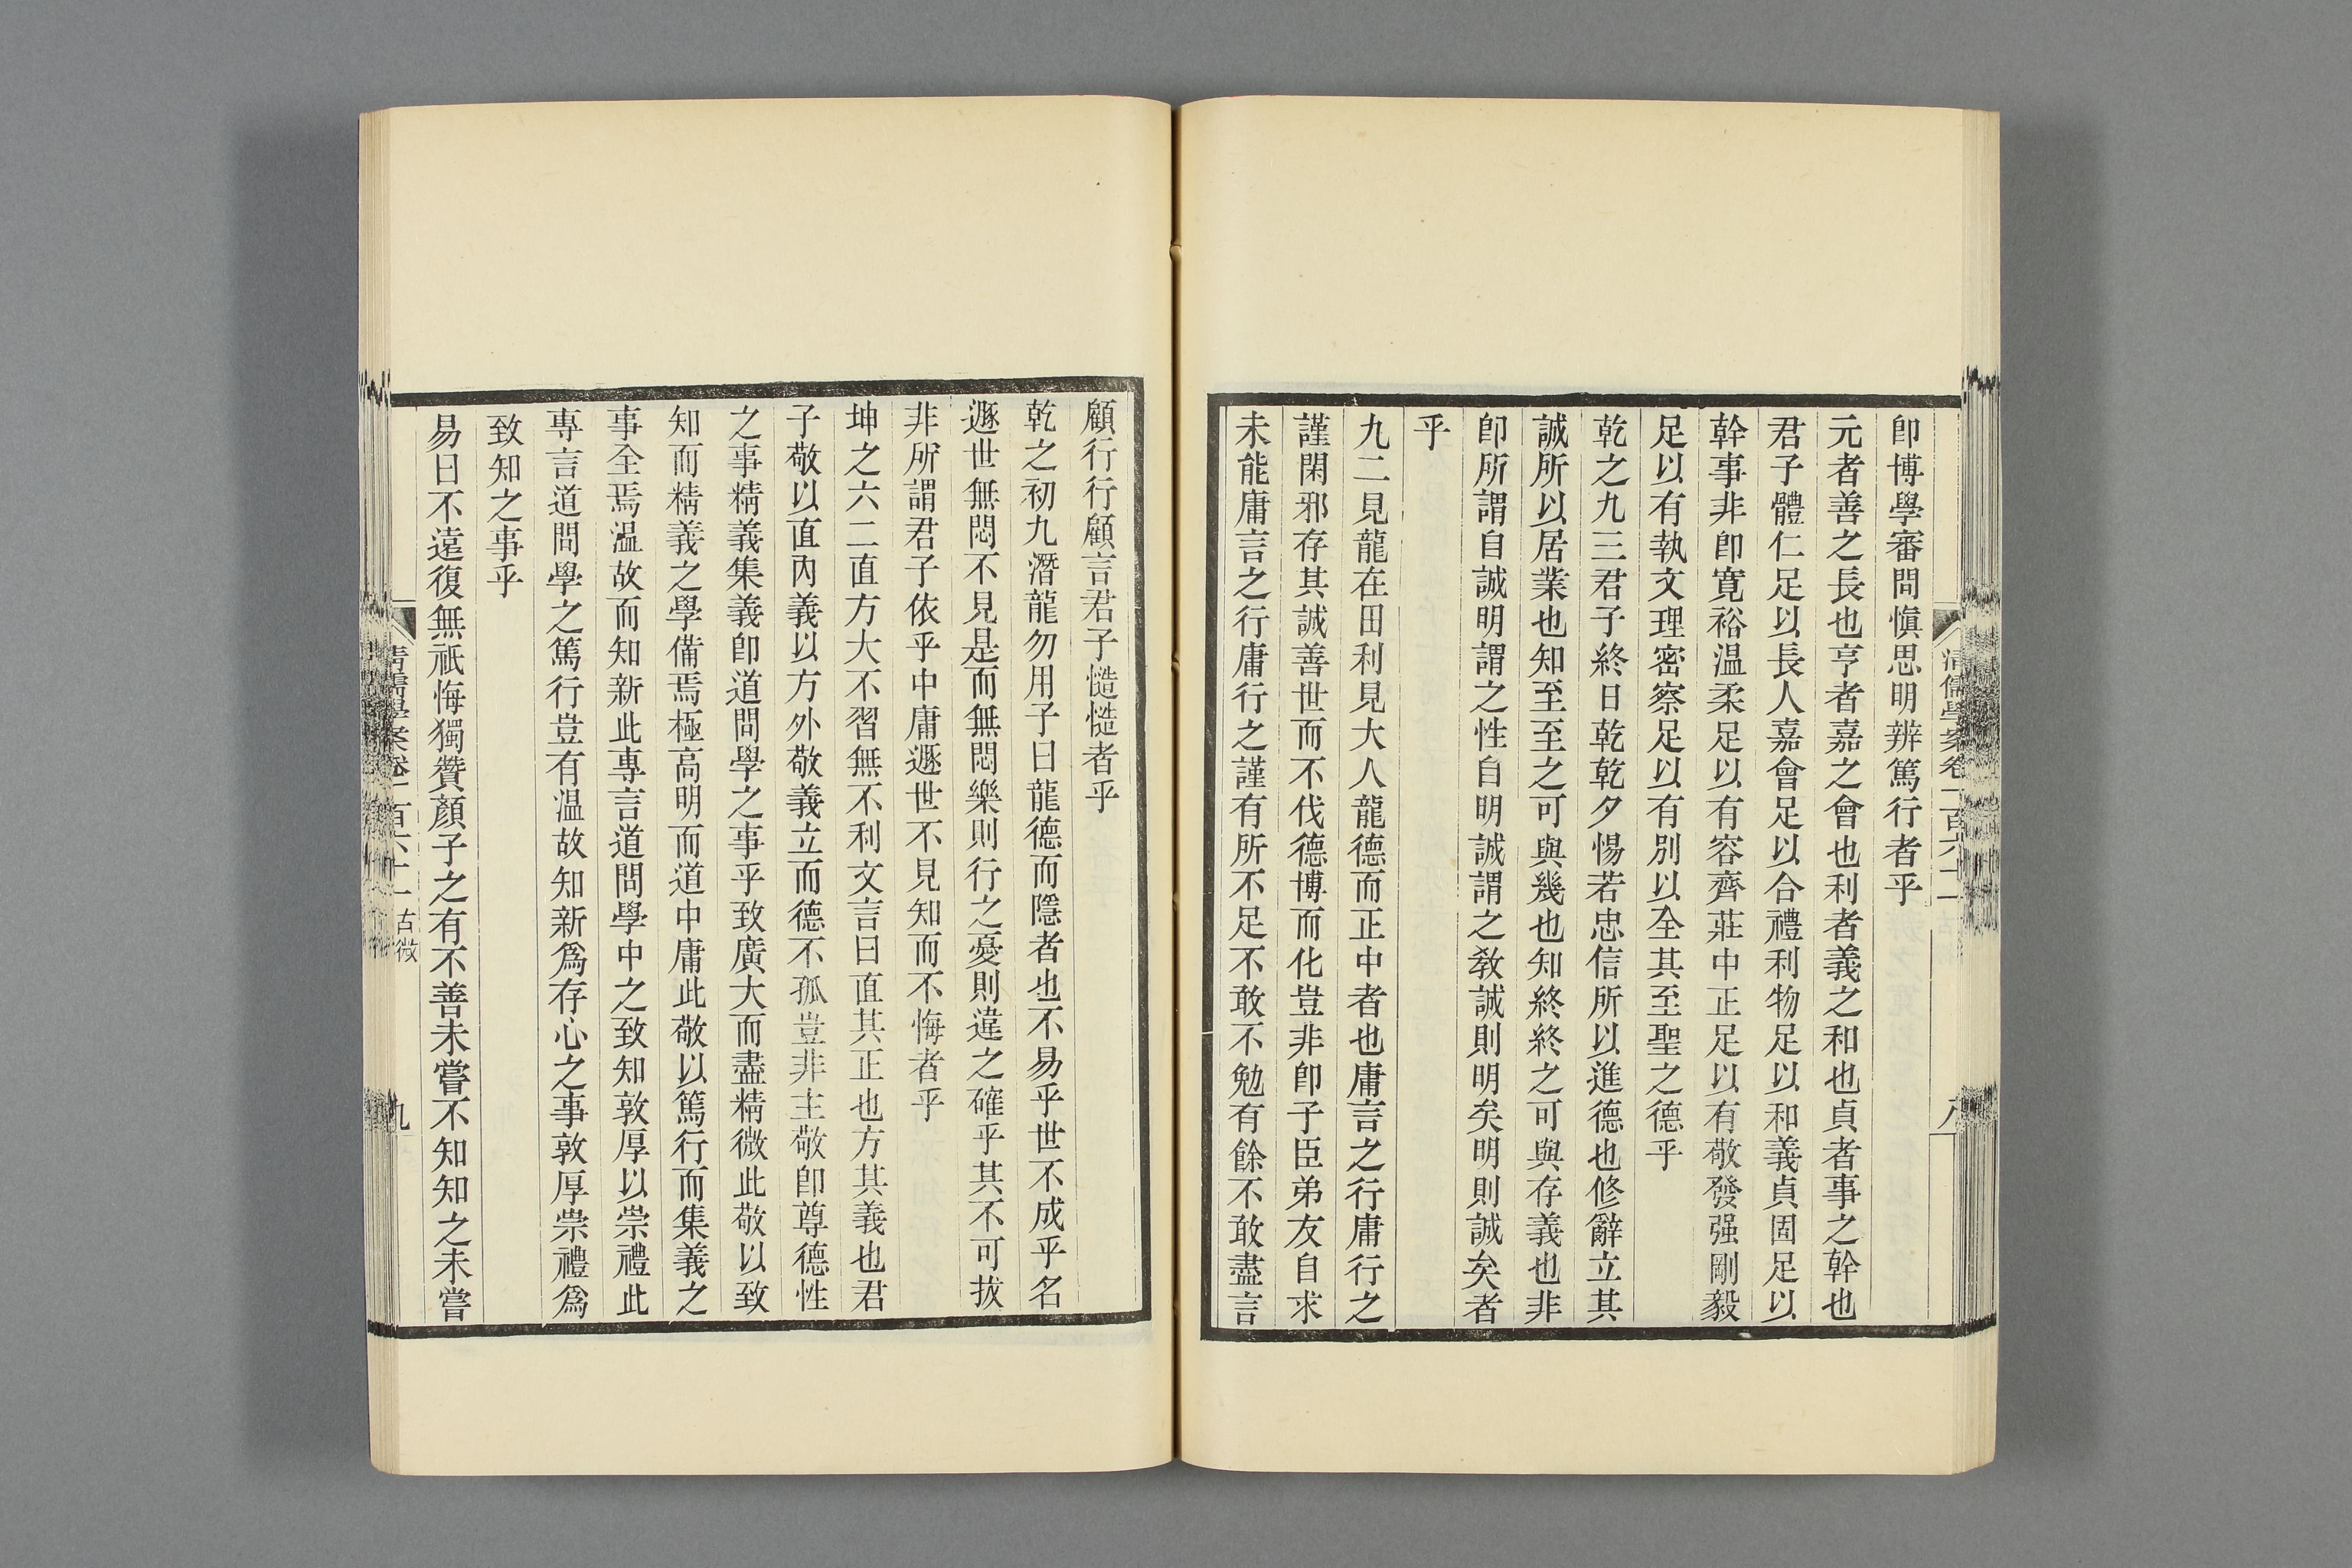 清儒學案卷一百六十一
八
卽博學審問愼思明辨篤行者乎
元者善之長也亨者嘉之會也利者義之和也貞者事之幹也
君子體仁足以長人嘉會足以合禮利物足以和義貞固足以
幹事非卽寬裕温柔足以有容齊莊中正足以有敬發强剛毅
足以有執文理密察足以有別以全其至聖之德乎
乾之九三君子終日乾乾夕惕若忠信所以進德也修辭立其
誠所以居業也知至至之可與幾也知終終之可與存義也非
卽所謂自誠明謂之性自明誠謂之敎誠則明矣明則誠矣者
乎
九二見龍在田利見大人龍德而正中者也庸言之行庸行之
謹閑邪存其誠善世而不伐德博而化豈非卽子臣弟友自求
未能庸言之行庸行之謹有所不足不敢不勉有餘不敢盡言
顧行行顧言君子慥慥者乎
乾之初九潛龍勿用子曰龍德而隱者也不易乎世不成乎名
遯世無悶不見是而無悶樂則行之憂則違之確乎其不可拔
非所謂君子依乎中庸遯世不見知而不悔者乎
坤之六二直方大不習無不利文言曰直其正也方其義也君
子敬以直內義以方外敬義立而德不孤豈非主敬卽尊德性
之事精義集義卽道問學之事乎致廣大而盡精微此敬以致
知而精義之學備焉極高明而道中庸此敬以篤行而集義之
事全焉温故而知新此專言道問學中之致知敦厚以崇禮此
專言道問學之篤行豈有温故知新爲存心之事敦厚崇禮爲
致知之事乎
易曰不遠復無祇悔獨贊顏子之有不善未嘗不知知之未嘗
清儒學案卷一百六十一 古微
九